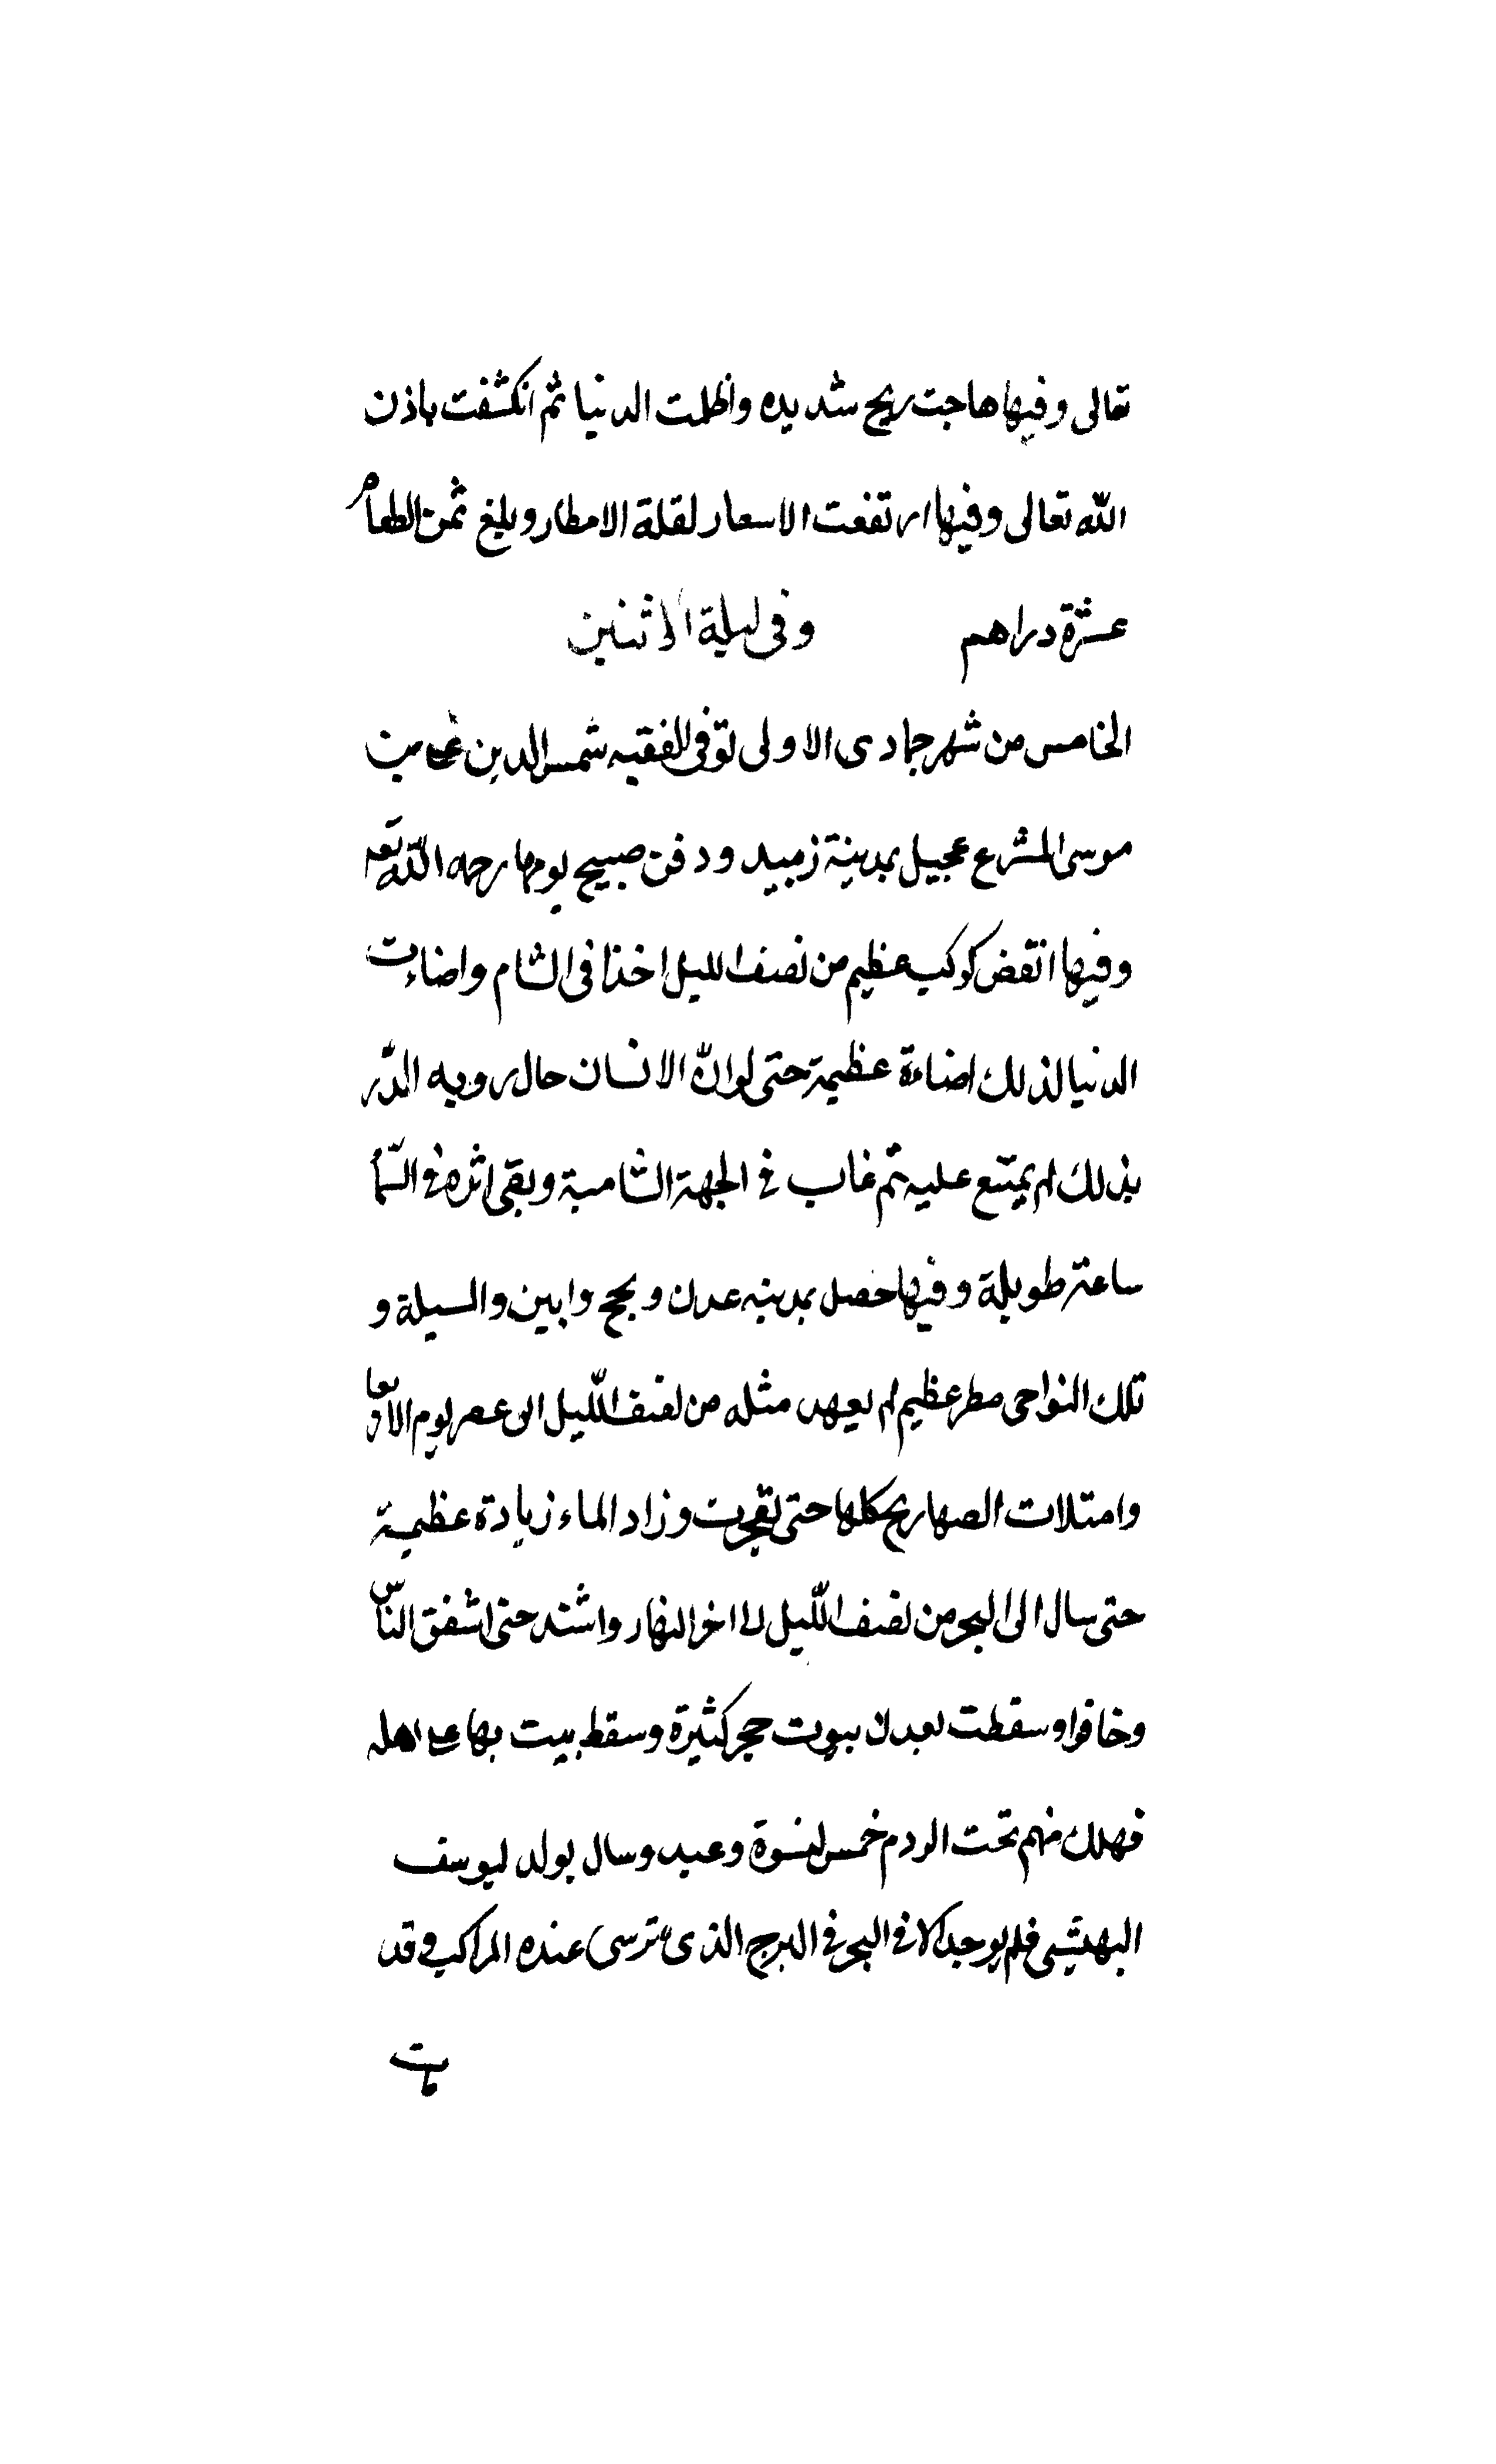 تعالى وفيها هاجت ريح شديده واظلمت الدنيا ثم انكشفت باذن
الله تعالى وفيها ارتفعت الاسعار لقلة الامطار وبلغ ثمن الطعام
عشرة دراهم وفى ليلة الاثنين
الخامس من شهر جمادى الاولى توفى الفقيه شمس الدين على بن
موسى المشرع عجيل بمدينة زبيد ودفن صبيح يومها رحمه الله تعه
وفيها انقض كوكب عظيم من نصف الليل اخذا فى الشام واضاءت
الدنيا لذلك اضاءة عظيمة حتى لو ان الانسان حال رويه الذر
بذلك لم يمتنع عليه ثم غاب في الجهة الشامية وبقى اثره فى السما
ساعة طويلة وفيها حصل بمدينه عدن ولحج وابين والسيلة و
تلك النواحى مطر عظيم لم يعهد مثله من نصف الليل الى عصر يوم الاربعا
وامتلات الصهاريج كلها حتى تفجرت وزاد الماء زيادة عظيمة
حتى سال الى البحر من نصف الليل لا اخر النهار واشتد حتى اشفق الناس
وخافوا وسقطت بعدن بيوت حجر كثيرة وسقط بيت بها على اهله
فهلك منهم تحت الردم خمس نسوة وعبد وسال بولد ليوسف
البهتيسى فلم يوجد الا فى البحر فى البرج الذى ترسى عنده المراكب وقد
مات